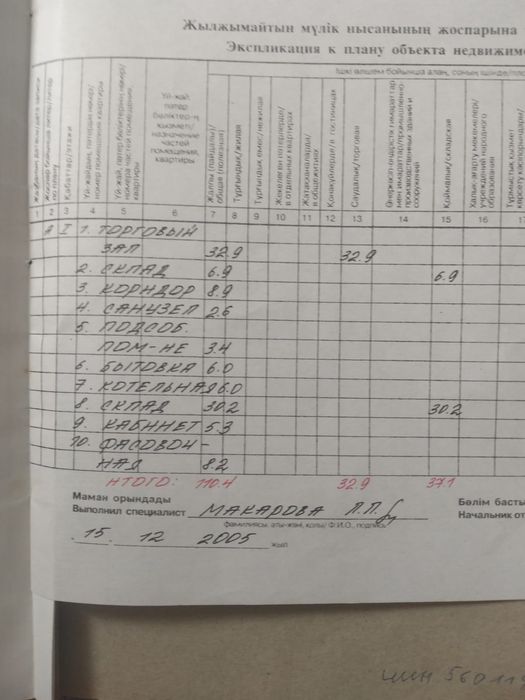 Жылжымайтын мүлік нысанының жоспарына
Экспликация к плану объекта недвижим
Ішкі өлшем бойынша алаң, соның ішінде/
Қабаттар/этажи
Үй-жай, пәтер бөліктер-ң қызметі/назначение частей помещения, квартиры
Жалпы (пайдалы)/общая (полезная)
Тұрғындық/жилая
Тұрғындық емес/нежилая
Жекелеген пәтерлерде/в отдельных квартирах
Жатақханаларда/в общежитиях
Қонақүйлерде/в гостиницах
Саудалық/торговая
Қоймалық/складская
1 2 3 4 5 6 7 8 9 10 11 12 13 14 15 16 17
А I 1. ТОРГОВЫЙ
ЗАЛ 32.9 32.9
2. СКЛАД 6.9 6.9
3. КОРИДОР 8.9
4. САНУЗЕЛ 2.6
5. ПОДСОБ.
ПОМ-НЕ 3.4
6. БЫТОВКА 6.0
7. КОТЕЛЬНАЯ 6.0
8. СКЛАД 30.2 30.2
9. КАБИНЕТ 5.3
10. ФАСОВОЧ-
НАЯ 8.2
ИТОГО: 110.4 32.9 37.1
Маман орындады
Выполнил специалист МАКАРОВА Л.П.
фамилиясы, аты-жөні, қолы/ Ф.И.О., подпись
Бөлім басты
Начальник от
15. 12 2005 жыл